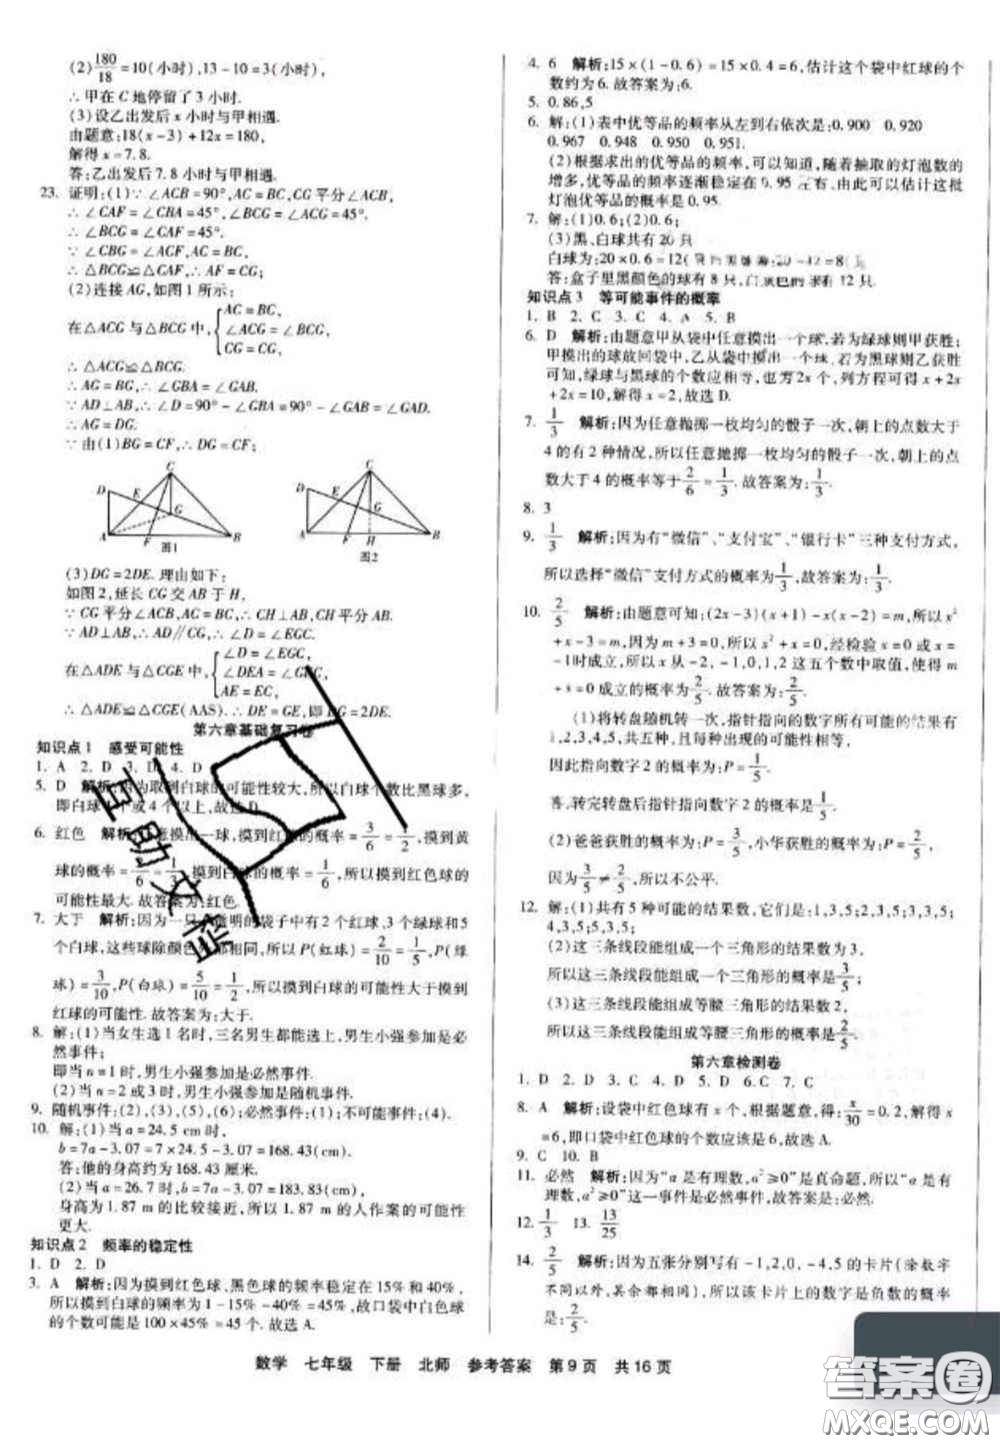 (2)180/18=10(小时),13-10=3(小时).
∴甲在C地停留了3小时.
(3)设乙出发后x小时与甲相遇.
由题意:18(x-3)+12x=180,
解得x=7.8.
答:乙出发后7.8小时与甲相遇.
23. 证明:(1)∵∠ACB=90°,AC=BC,CG平分∠ACB,
∴∠CAF=∠CBA=45°,∠BCG=∠ACG=45°.
∴∠BCG=∠CAF=45°.
∵∠CBG=∠ACF,AC=BC,
∴△BCG≌△CAF,∴AF=CG;
(2)连接AG,如图1所示:
在△ACG与△BCG中,{AC=BC,
∠ACG=∠BCG,
CG=CG,
∴△ACG≌△BCG.
∴AG=BG,∴∠GAB=∠GBA.
∵AD⊥AB,∴∠D=90°-∠GBA=90°-∠GAB=∠DAG.
∴AG=DG.
∵由(1)BG=CF,∴DG=CF;
D E C G A F B 图1
D E C G A F H B 图2
(3)DG=2DE.理由如下:
如图2,延长CG交AB于H,
∵CG平分∠ACB,∴CH⊥AB,CH平分AB.
∵AD⊥AB,∴AD∥CG,∴∠D=∠EGC.
在△ADE与△CGE中,{∠D=∠EGC,
∠DEA=∠GEC,
AE=EC,
∴△ADE≌△CGE(AAS).∴DE=GE,即DG=2DE.
第六章基础复习卷
知识点1 感受可能性
1. A 2. D 3. D 4. D
5. D 解析:因为取到白球的可能性较大,所以白球个数比黑球多,
即白球 故选D.
6. 红色 解析:任意摸出一球,摸到红球的概率=3/6=1/2,摸到黄
球的概率=1/6,摸到白球的概率=2/6=1/3,所以摸到红色球的可
能性最大.故答案为:红色.
7. 大于 解析:因为一只不透明的袋子中有2个红球、3个绿球和5
个白球,这些球除颜色外都相同,所以P(红球)=2/10=1/5,P(绿球)
=3/10,P(白球)=5/10=1/2,所以摸到白球的可能性大于摸到
红球的可能性.故答案为:大于.
8. 解:(1)当女生选1名时,三名男生都能选上,男生小强参加是必
然事件;
即当n=1时,男生小强参加是必然事件;
(2)当n=2或3或4时,男生小强参加是随机事件.
9. 随机事件:(1),(2),(5),(6);必然事件:(3);不可能事件:(4).
10. 解:(1)当a=24.5 cm时,
b=7a-3.07=7×24.5-3.07=168.43(cm)
答:他的身高约为168.43厘米.
(2)当a=26.7时,b=7a-3.07=183.83(cm),
身高为1.87 m的比较接近,所以1.87 m的人作案的可能性
更大.
知识点2 频率的稳定性
1. D 2. D
3. A 解析:因为摸到红色球、黑色球的频率稳定在15%和40%,
所以摸到白球的频率为1-15%-40%=45%,故口袋中白色球
的个数可能是100×45%=45个.故选A.
4. 6 解析:15×(1-0.6)=15×0.4=6,估计这个袋中红球的个
数约为6.故答案为:6.
5. 0.86,5
6. 解:(1)表中优等品的频率从左到右依次是:0.900 0.920
0.967 0.948 0.950 0.951.
(2)根据求出的优等品的频率,可以知道,随着抽取的灯泡数的
增多,优等品的频率逐渐稳定在0.95左右,由此可以估计这批
灯泡优等品的概率是0.95.
7. 解:(1)0.6;(2)0.6;
(3)黑、白球共有20只
白球为:20×0.6=12(只),黑球为:20-12=8(只)
答:盒子里黑颜色的球有8只,白颜色的球有12只.
知识点3 等可能事件的概率
1. B 2. C 3. C 4. A 5. B
6. D 解析:由题意甲从袋中任意摸出一个球,若为绿球则甲获胜;
甲摸出的球放回袋中,乙从袋中摸出一个球,若为黑球则乙获胜
可知,绿球与黑球的个数应相等,也为2x个,列方程可得x+2x
+2x=10,解得x=2,故选D.
7. 1/3 解析:因为任意抛掷一枚均匀的骰子一次,朝上的点数大于
4的有2种情况,所以任意抛掷一枚均匀的骰子一次,朝上的点
数大于4的概率等于2/6=1/3.故答案为:1/3.
8. 3
9. 1/3 解析:因为有“微信”、“支付宝”、“银行卡”三种支付方式,
所以选择“微信”支付方式的概率为1/3,故答案为:1/3.
10. 2/5 解析:由题意可知:(2x-3)(x+1)-x(x-2)=m,所以x²
+x-3=m,因为m+3=0,所以x²+x=0,经检验x=0或x=-
1时成立,所以x从-2,-1,0,1,2这五个数中取值,使得m
+3=0成立的概率为2/5.故答案为:2/5.
(1)将转盘随机转一次,指针指向的数字所有可能的结果有
1,2,3,4,5,共5种,并且它们出现的可能性相等,
因此指向数字2的概率为P=1/5,
转完转盘后指针指向数字2的概率是1/5.
(2)爸爸获胜的概率为:P=3/5,小华获胜的概率为:P=2/5,
因为3/5≠2/5,所以不公平.
12. 解:(1)共有5种可能的结果数,它们是:1,3,5;2,3,5;3,3,5;
4,3,5;5,3,5;
(2)这三条线段能组成一个三角形的结果数为3,
所以这三条线段能组成一个三角形的概率是3/5;
(3)这三条线段能组成等腰三角形的结果数2,
所以这三条线段能组成等腰三角形的概率是2/5.
第六章检测卷
1. D 2. D 3. D 4. D 5. D 6. C 7. C
8. A 解析:设袋中红色球有x个,根据题意,得:x/30=0.2,解得x
=6,即口袋中红色球的个数应该是6.故选A.
9. C 10. B
11. 必然 解析:因为“a是有理数,a²≥0”是真命题,所以“a是有
理数,a²≥0”这一事件是必然事件,故答案是:必然.
12. 1/3 13. 13/25
14. 2/5 解析:因为五张分别写有-1,2,0,-4,5的卡片(除数字
不同以外,其余都相同),所以该卡片上的数字是负数的概率
是:2/5.
数学 七年级 下册 北师 参考答案 第9页 共16页
答案圈
MXQE.COM